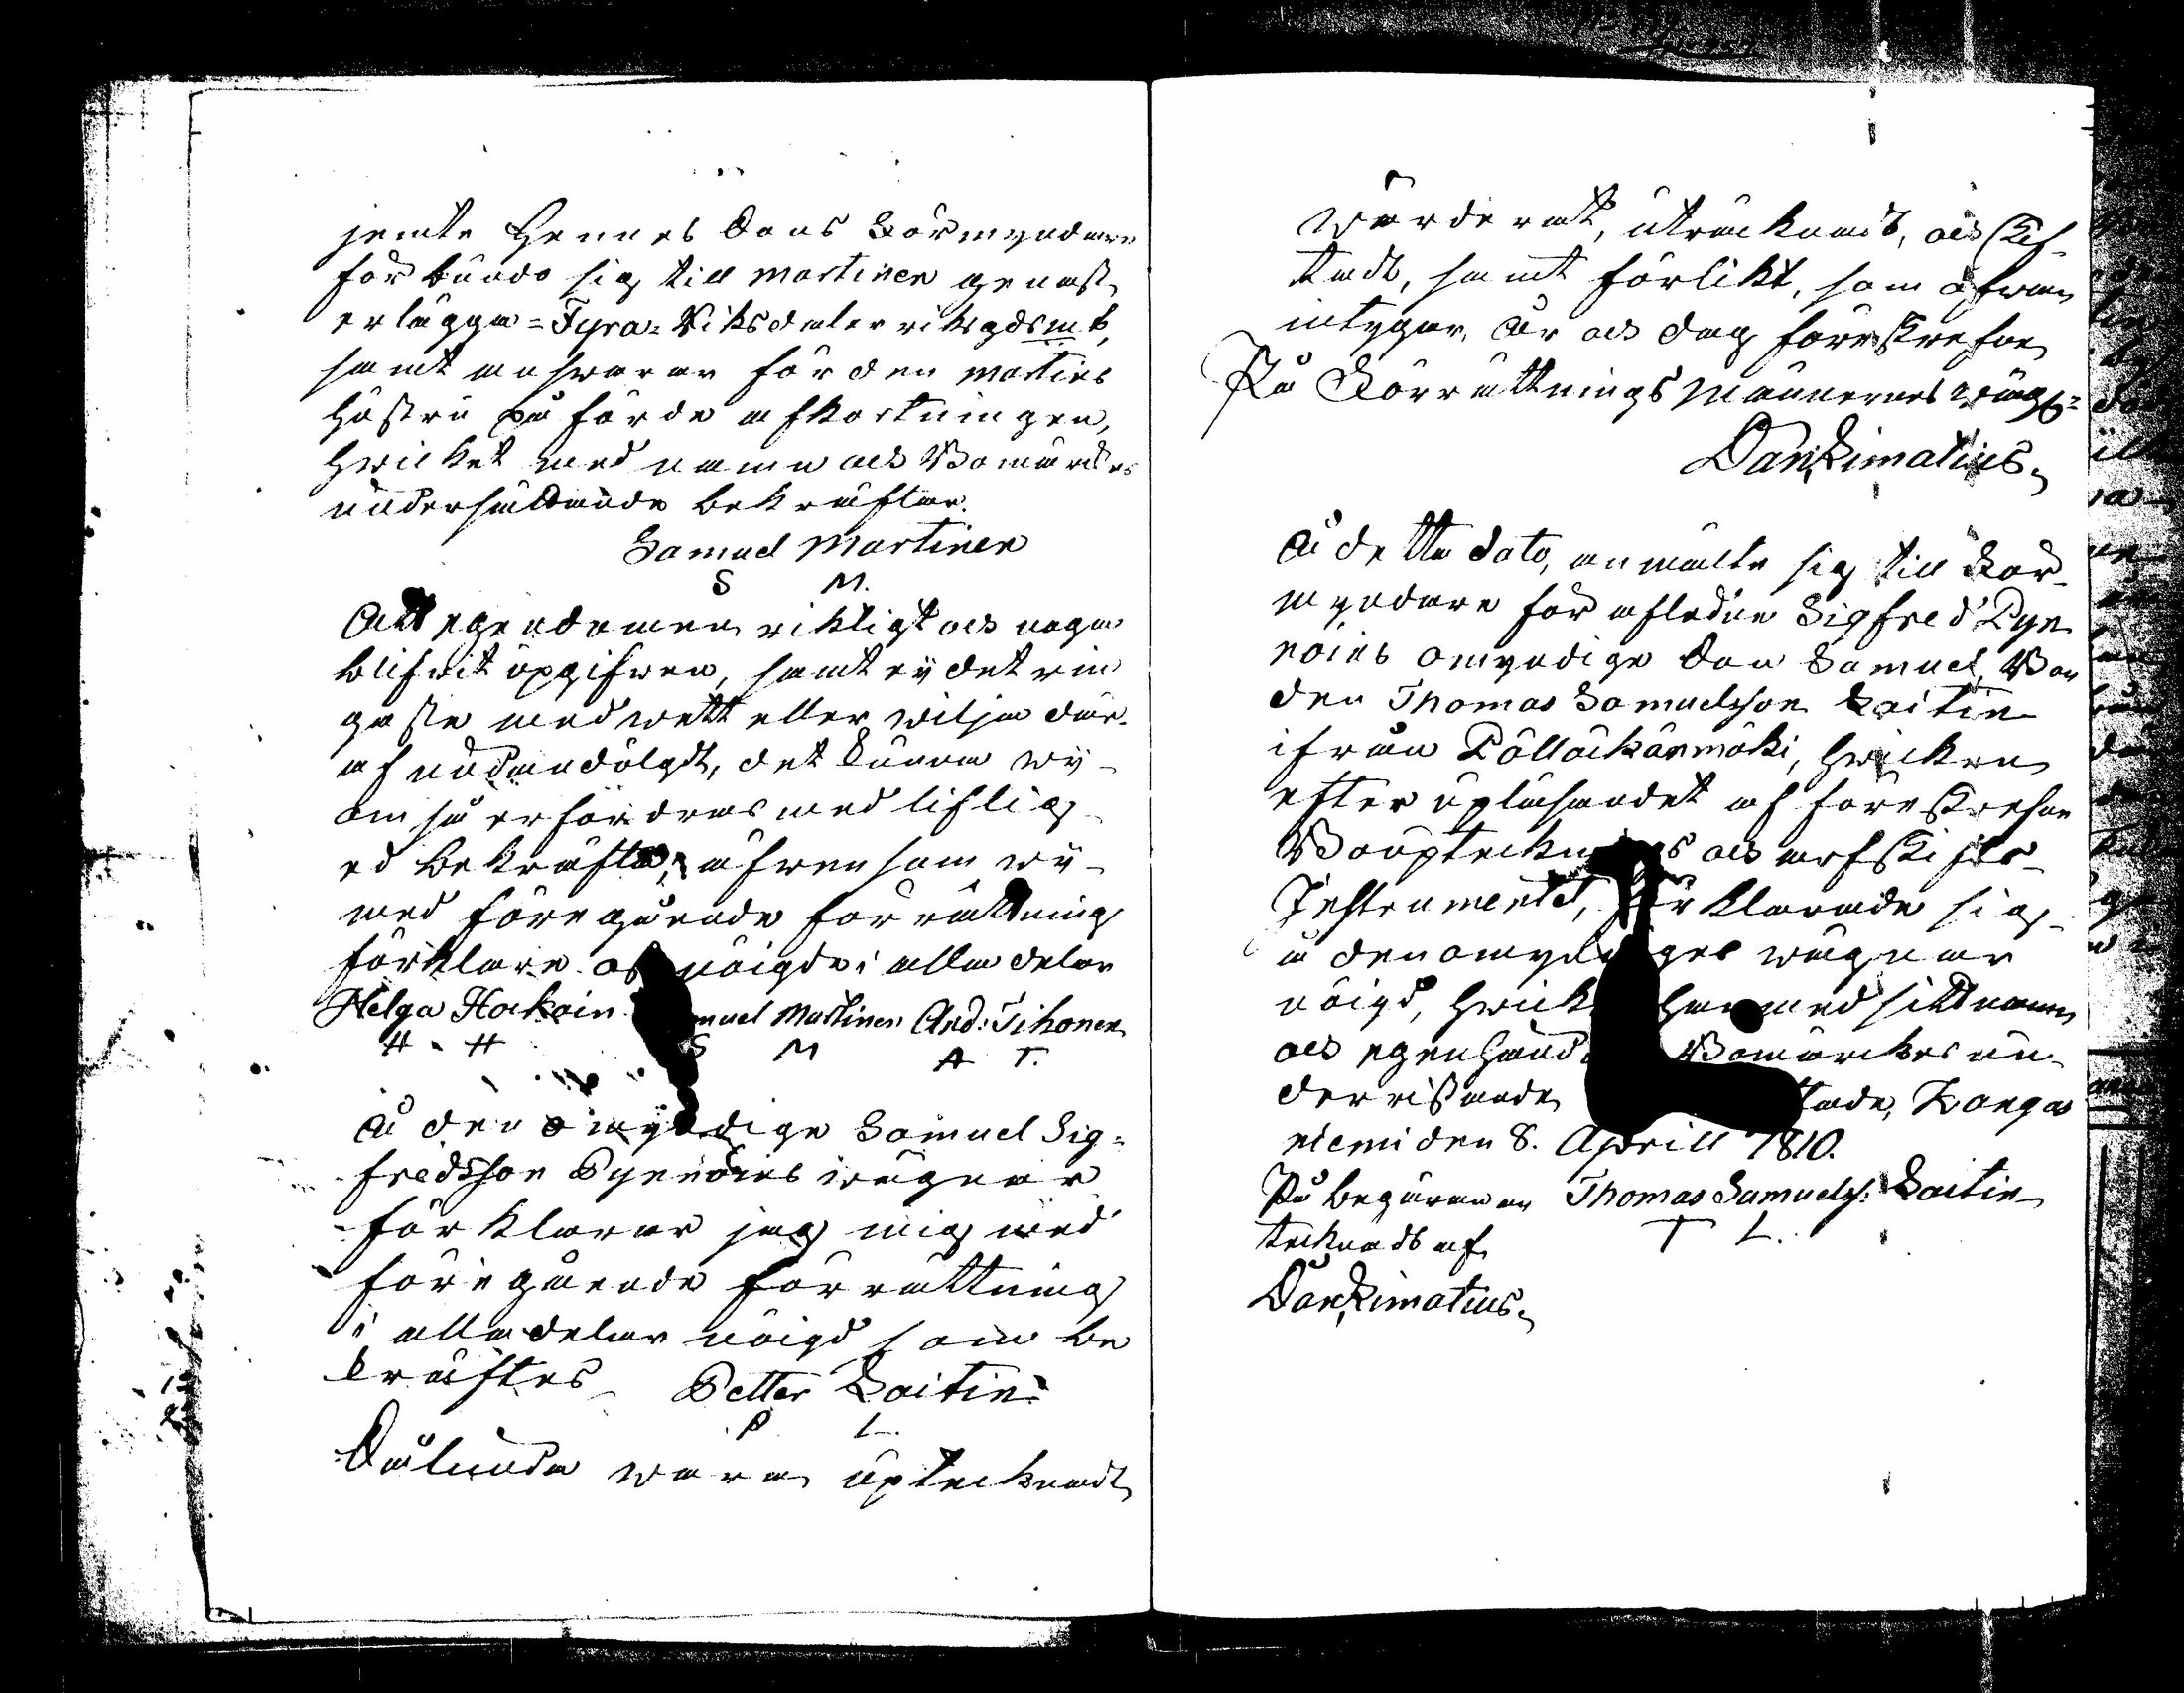 jemte Hennes Sons Förmyndare
förbundo sig till Martinen genast
erlägga = Fyra = Riksdaler riksgds mt,
samt answarar för den Martins
Hustru påförde afkortningen,
Hwilket med namn och Bomärkes
undersättande bekräftar.
Samuel Martinen
S M.
Att egendomen riktigt och noga
blifwit upgifwen, samt ej det rin
gaste med wett eller wilja där-
af undandölgdt, det kunna wij
om så erfordras med liflig
ed bekräfta, äfwen som wij
med föregående förrättning
förklare oss nöigde i alla delar
Helga Hokain muel Martinen And: Tihonen
H H S M A T.
Å den omyndige Samuel Sig=
fredsson Pynnöins wägnar
förklarar jag mig med
föregående förrättning
i alla delar nöigd som be
kräftes Petter Laitin
P L
Sålunda wara uptecknadt
wärderat, uträcknadt, och skif
tadt, samt förlikt, som ofwan
intygar, år och dag föreskrefne
På Förrättnings Männernes wägn=
Dan. Limatius.
Å detta dato, anmälte sig till För-
myndare för aflidne Sigfred Pyn
nöins omyndige Son Samuel, Bon
den Thomas Samuelsson Laitin
ifrån Pöllöckänmäki, Hwilken
efter upläsandet af föreskrefne
Boupteckni s och arfskifts
Instrumentet, förklarade sig
å den omyndiges wägnar
nöigd, Hwilk Han med sitt namn
och egenhänd Bomärkes un-
derrissande tade, Kangas
niemi den 8. Aprill 1810.
På begäran Thomas Samuels: Laitin
tecknadt af T L.
Dan. Limatius.